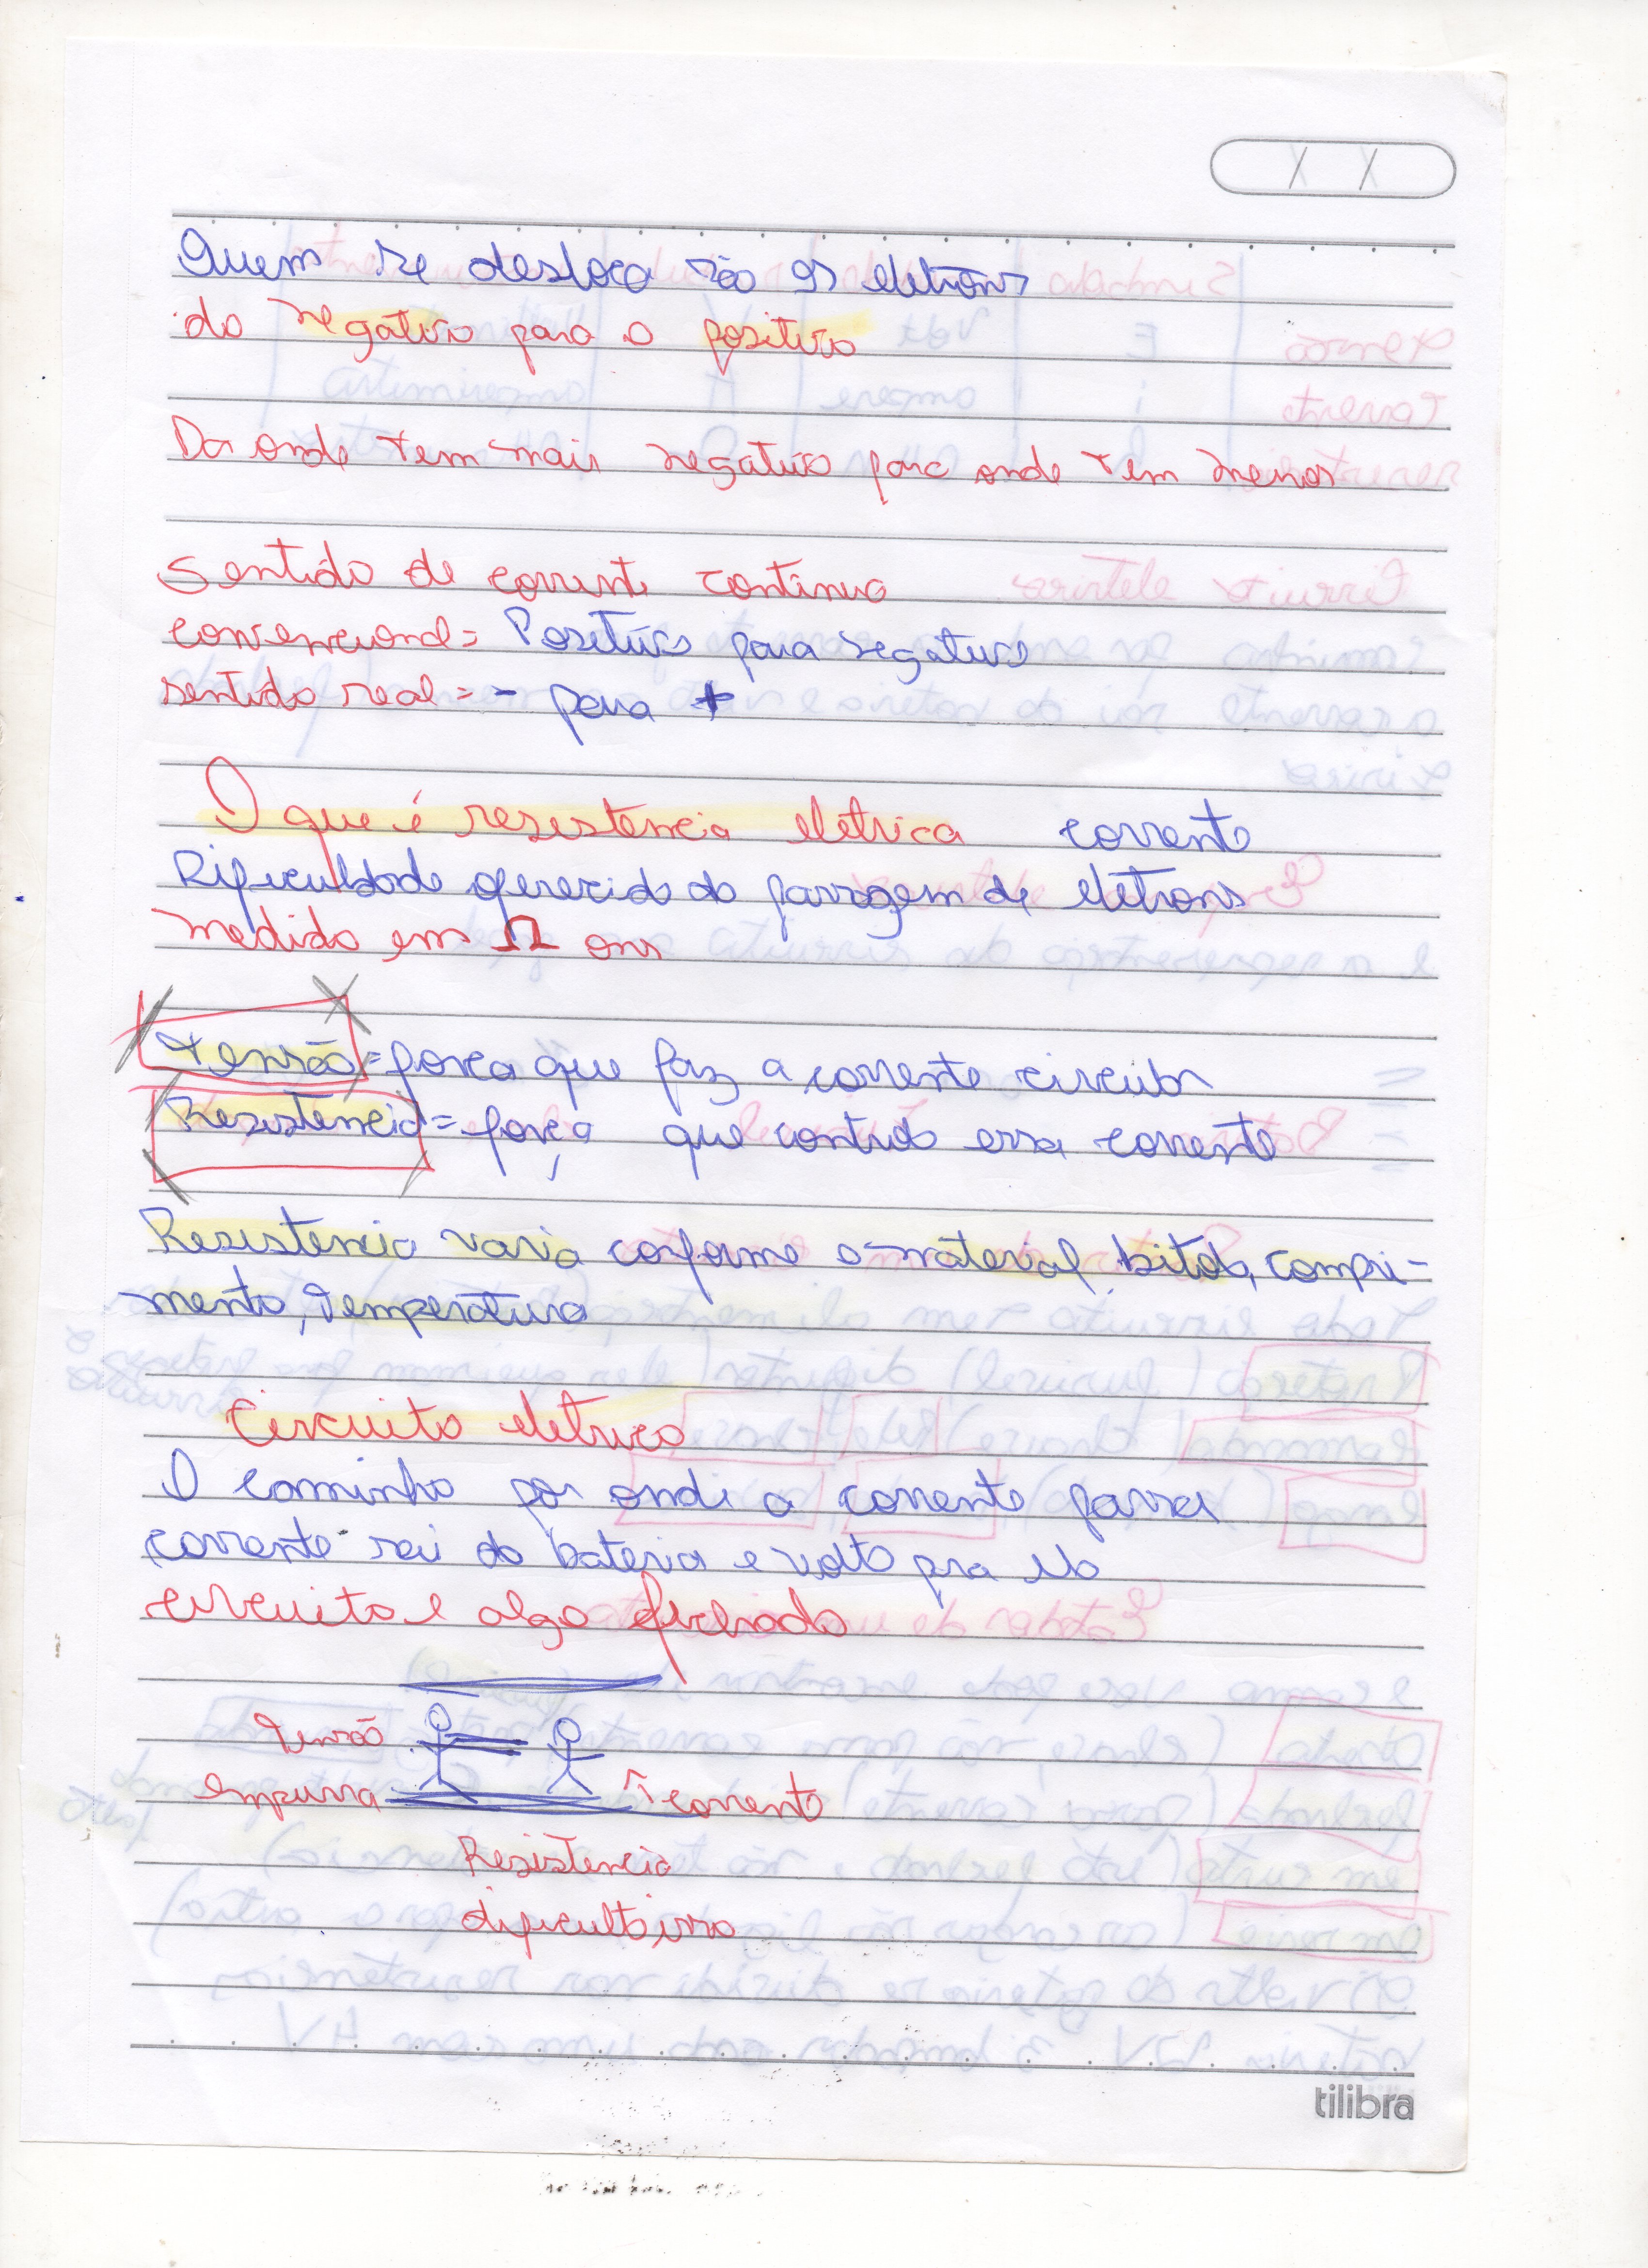 Quem se desloca são os eletrons
do negativo para o positivo
Da onde tem mais negativo para onde tem menos
Sentido de corrente continua
convencional = Positivo para negativo
sentido real = - para +
O que é resistencia eletrica corrente
Dificuldade oferecida da passagem de eletrons
medido em Ω oms
tensão = força que faz a corrente circular
Resistencia = força que controla essa corrente
Resistencia varia conforme o material, bitola, compri-
mento, temperatura
Circuito eletrico
O caminho por onde a corrente passa
corrente sai da bateria e volta pra ela
circuito e algo fechado
tensão
empurra corrente
Resistencia
dificulta isso
tilibra